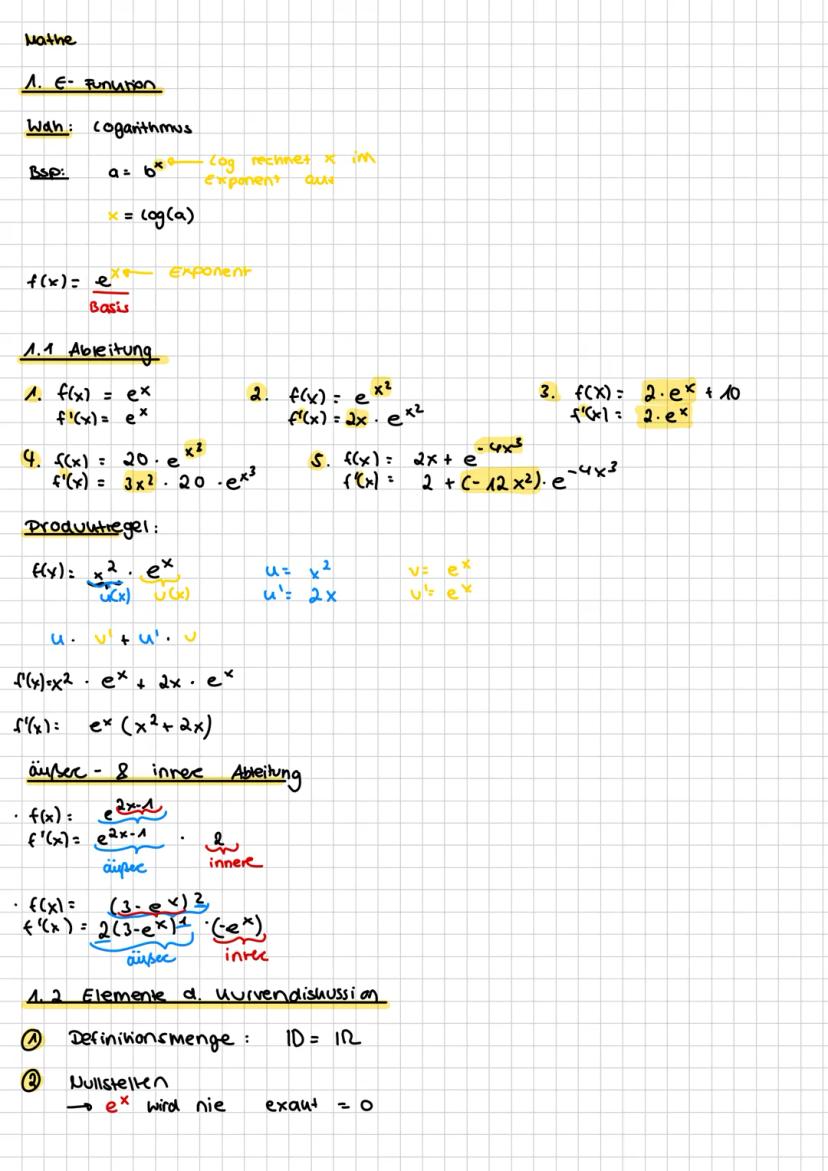 Mathe
1. E- Funktion
Wdh: Logarithmus
Bsp: a = b^x ← Log rechnet x im
Exponent aus
x = log(a)
f(x) = e^x ← Exponent
Basis
1.1 Ableitung
1. f(x) = e^x 2. f(x) = e^x² 3. f(x) = 2·e^x + 10
f'(x) = e^x f'(x) = 2x · e^x² f'(x) = 2·e^x
4. f(x) = 20 · e^x³ 5. f(x) = 2x + e^-4x³
f'(x) = 3x² · 20 · e^x³ f'(x) = 2 + (-12x²)· e^-4x³
Produktregel:
f(x) = x² · e^x u = x² v = e^x
u(x) v(x) u' = 2x v' = e^x
u · v' + u' · v
f'(x) = x² · e^x + 2x · e^x
f'(x) = e^x (x² + 2x)
äußere - & innere Ableitung
· f(x) = e^2x-1
f'(x) = e^2x-1 · 2
äußere innere
· f(x) = (3 - e^x)²
f'(x) = 2(3-e^x)¹ ·(-e^x)
äußere innere
1.2 Elemente d. Kurvendiskussion
① Definitionsmenge : ID = IR
② Nullstellen
→ e^x wird nie exakt = 0